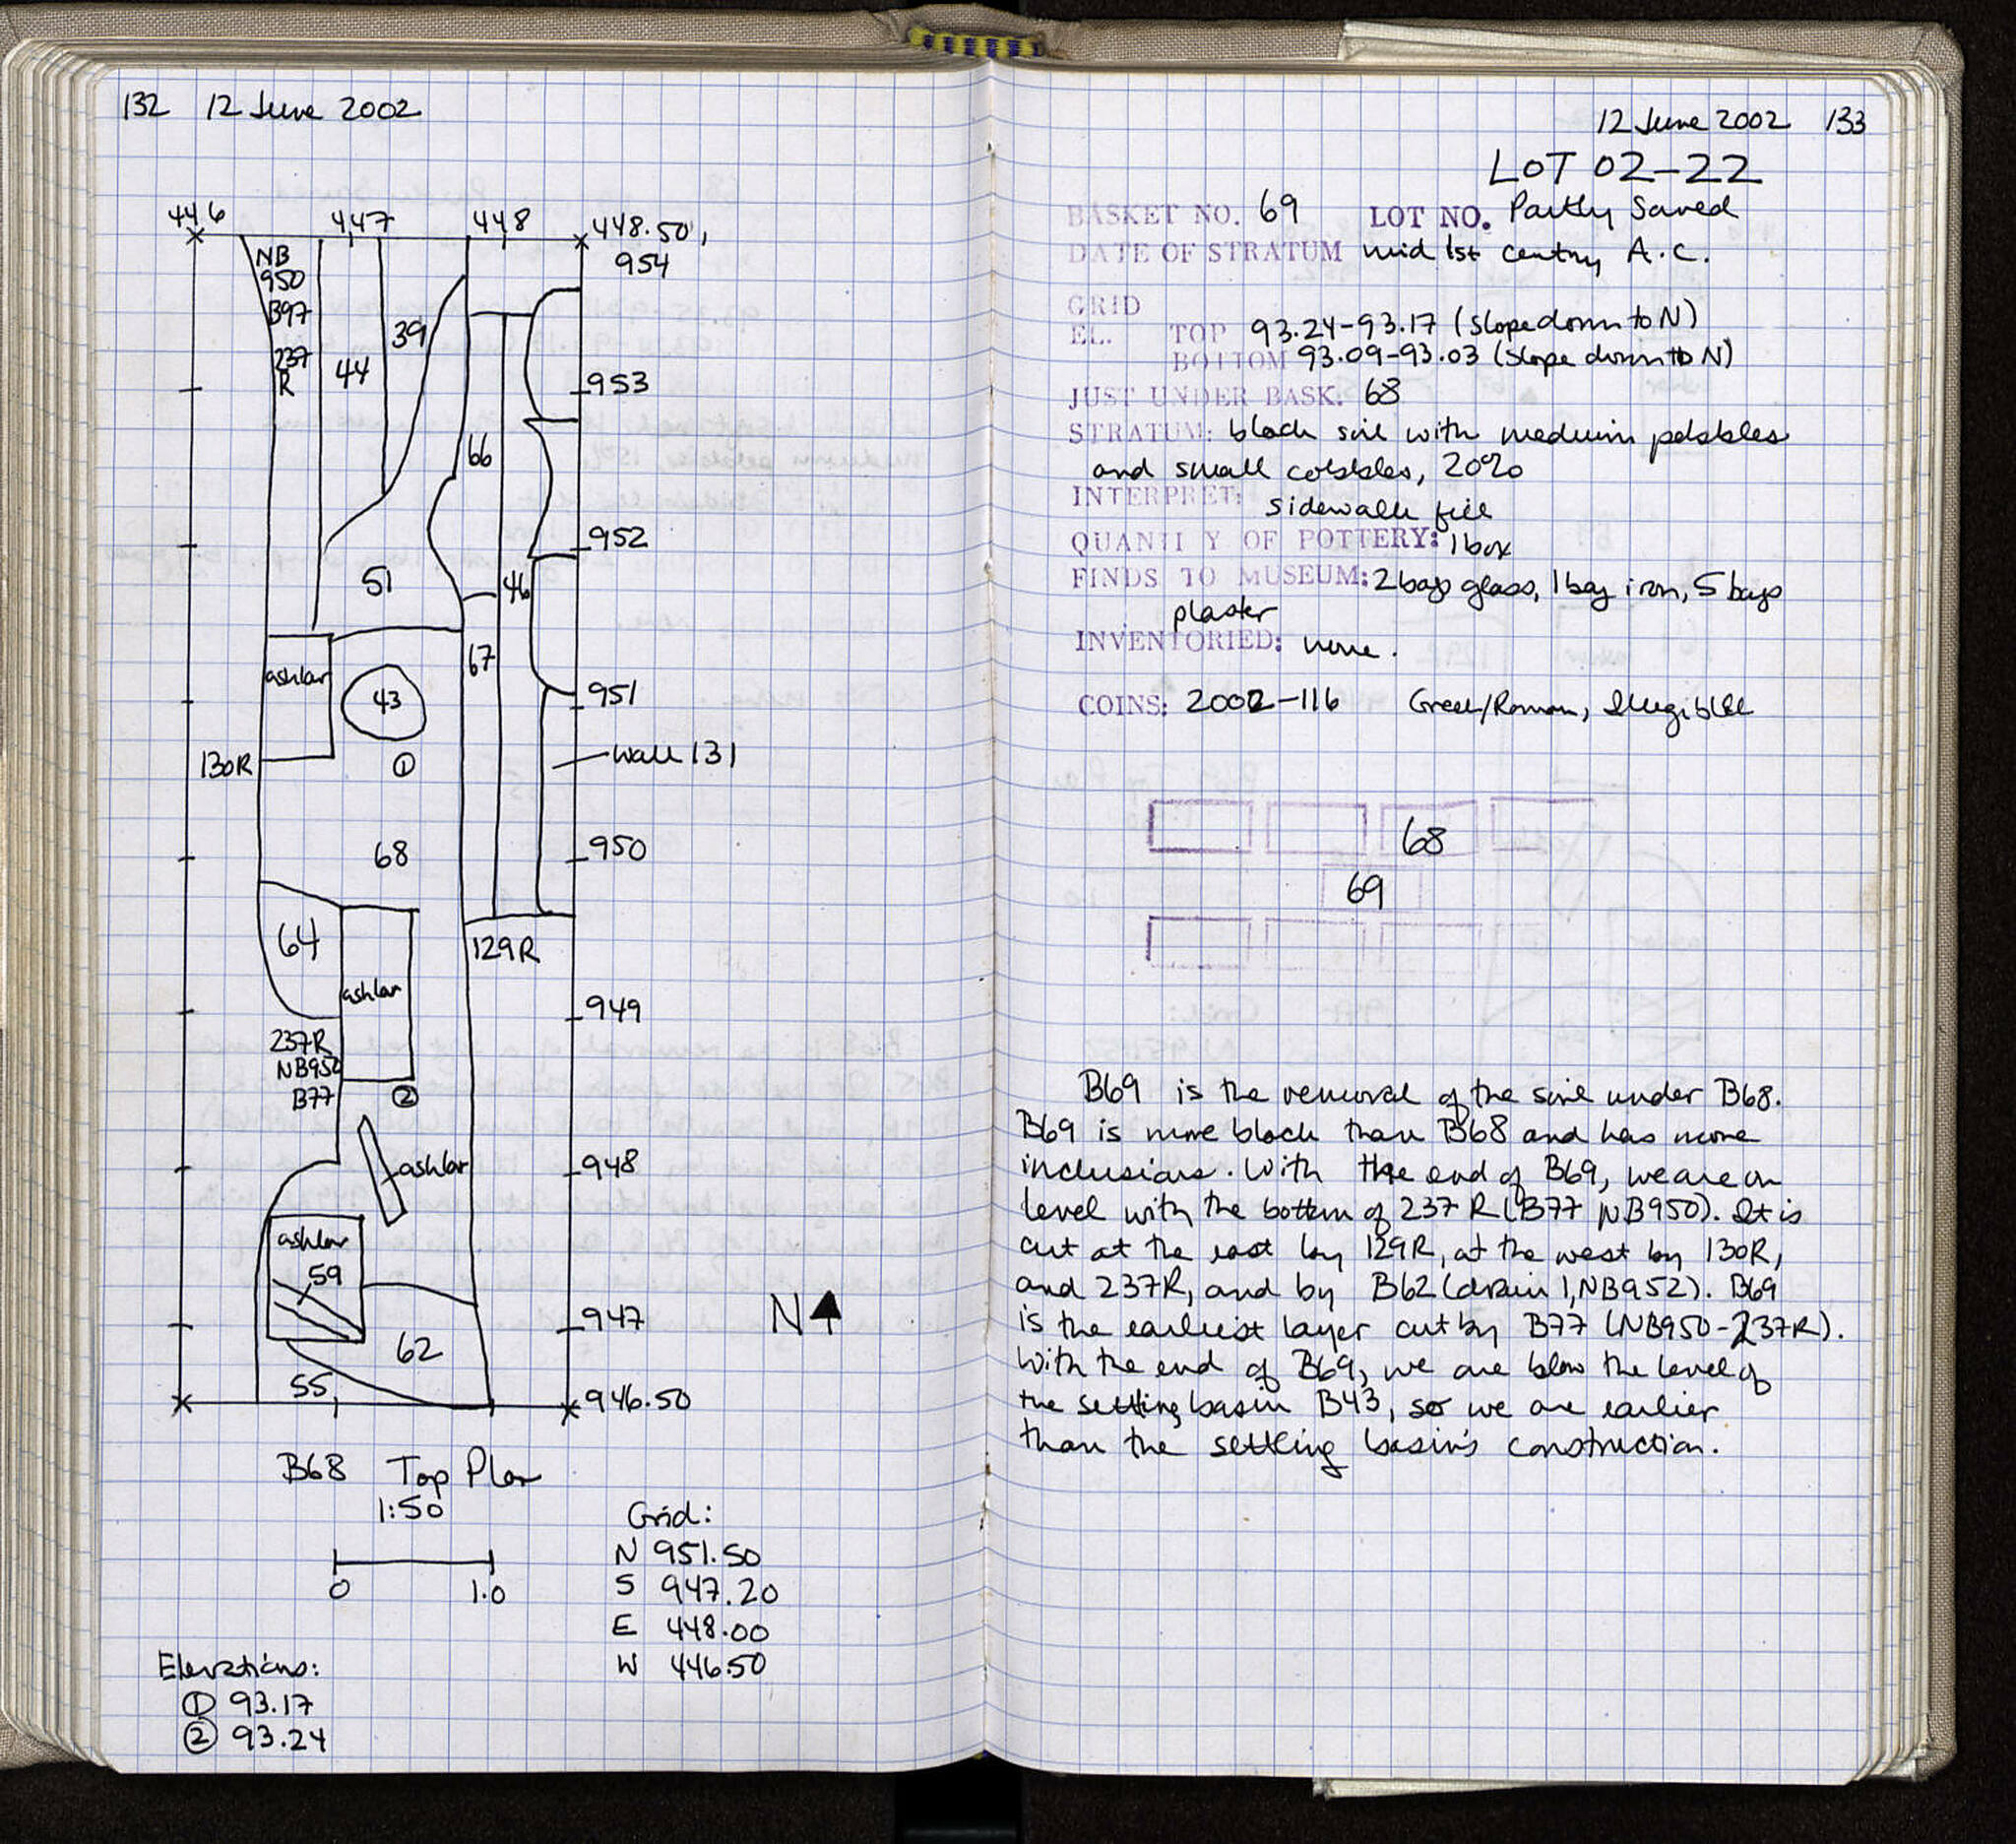 132 12 June 2002
446 447 448 448.50,
954
NB
950
B97
237
R
44
39
953
66
952
51
46
ashlar
43
67
951
130R
①
Wall 131
68
950
64
129R
ashlar
949
237R
NB952
B77
②
ashlar
948
ashlar
59
947
N
62
55
946.50
B68 Top Plan
1:50
0 1.0
Grid:
N 951.50
S 947.20
E 448.00
W 446.50
Elevations:
① 93.17
② 93.24
12 June 2002 133
LOT 02-22
BASKET NO. 69 LOT NO. Partly Saved
DATE OF STRATUM mid 1st century A.C.
GRID
EL. TOP 93.24-93.17 (slope down to N)
BOTTOM 93.09-93.03 (slope down to N)
JUST UNDER BASK. 68
STRATUM: black soil with medium pebbles
and small cobbles, 20%
INTERPRET: sidewalk fill
QUANTI Y OF POTTERY: 1 box
FINDS TO MUSEUM: 2 bags glass, 1 bag iron, 5 bags
plaster
INVENTORIED: none.
COINS: 2002-116 Greek/Roman, Illegible
68
69
B69 is the removal of the soil under B68.
B69 is more black than B68 and has more
inclusions. With the end of B69, we are on
level with the bottom of 237R (B77 NB950). It is
cut at the east by 129R, at the west by 130R,
and 237R, and by B62 (drain 1, NB952). B69
is the earliest layer cut by B77 (NB950-237R).
With the end of B69, we are blow the level of
the settling basin B43, so we are earlier
than the settling basin's construction.